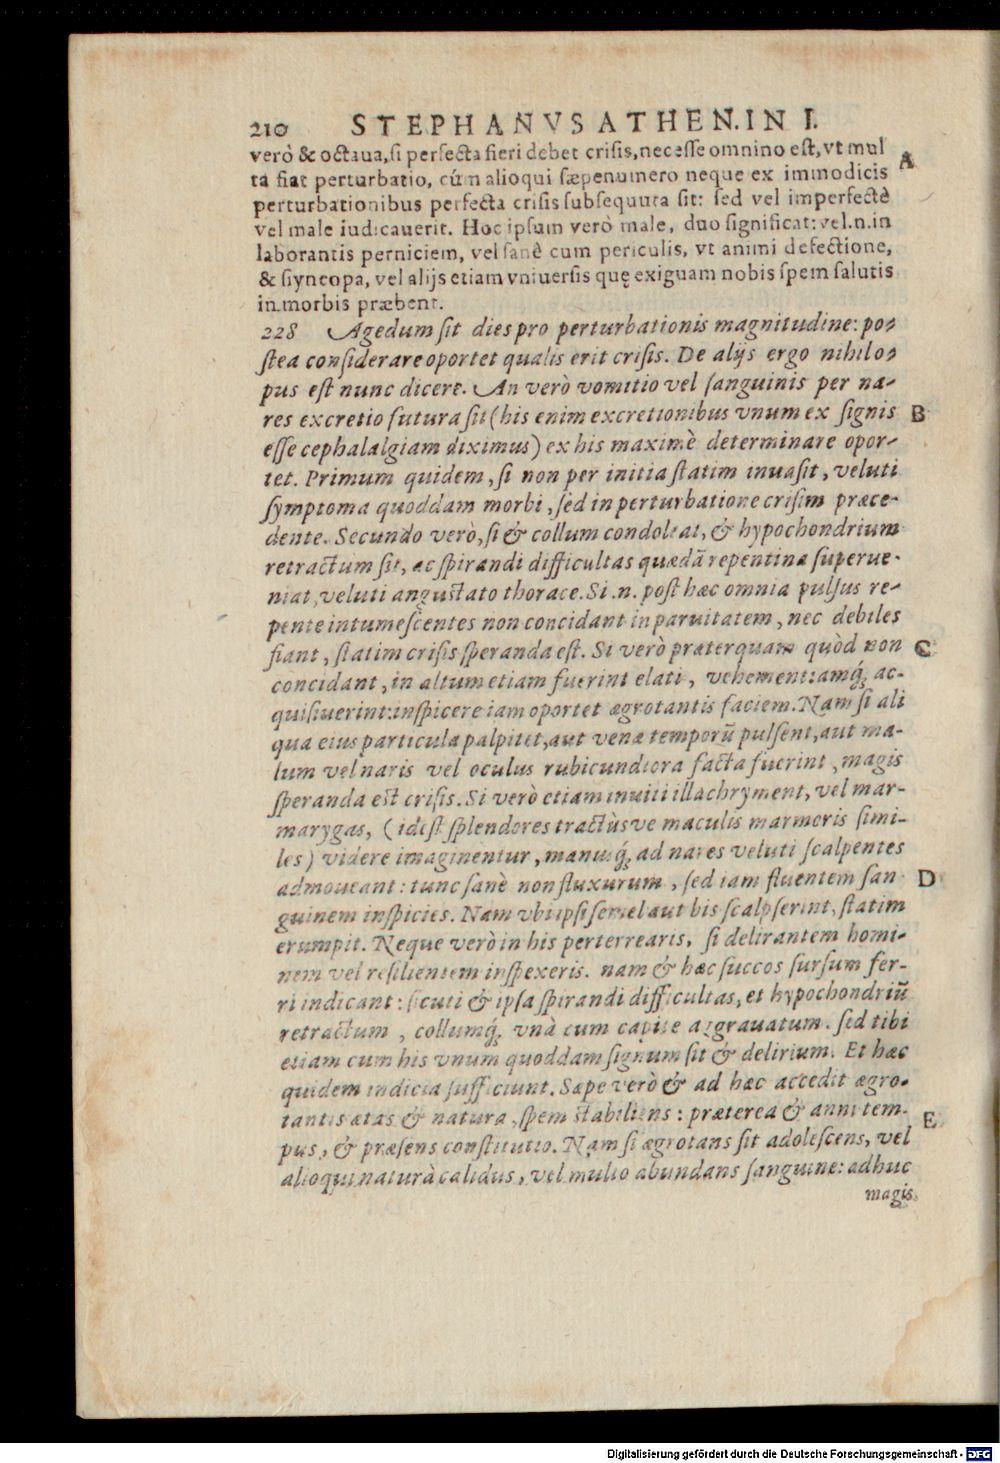 210 STEPHANVS ATHEN. IN I.
verò & octaua, si perfecta fieri debet crisis, necesse omnino est, vt mul
ta fiat perturbatio, cúm alioqui sæpenumero neque ex immodicis
perturbationibus perfecta crisis subsequuta sit: sed vel imperfectè
vel male iudicauerit. Hoc ipsum verò male, duo significat: vel.n.in
laborantis perniciem, vel sanè cum periculis, vt animi defectione,
& siyncopa, vel alijs etiam vniuersis quę exiguam nobis spem salutis
in morbis præbent.
A
228 Agedum sit dies pro perturbationis magnitudine: po-
stea considerare oportet qualis erit crisis. De alijs ergo nihilo-
pus est nunc dicere. An verò vomitio vel sanguinis per na-
res excretio futura sit (his enim excretionibus vnum ex signis
B
esse cephalalgiam diximus) ex his maximè determinare opor-
tet. Primum quidem, si non per initia statim inuasit, veluti
symptoma quoddam morbi, sed in perturbatione crisim præce-
dente. Secundo verò, si & collum condoleat, & hypochondrium
retractum sit, ac spirandi difficultas quædã repentina superue-
niat, veluti angustato thorace. Si .n. post hæc omnia pulsus re-
pente intumescentes non concidant in paruitatem, nec debiles
fiant, statim crisis speranda est. Si verò præterquam quòd non
C
concidant, in altum etiam fuerint elati, vehementiamq́; ac-
quisiuerint: inspicere iam oportet ægrotantis faciem. Nam si ali
qua eius particula palpitet, aut venæ temporũ pulsent, aut ma-
lum vel naris vel oculus rubicundiora facta fuerint, magis
speranda est crisis. Si verò etiam inuiti illachryment, vel mar-
marygas, (idest splendores tractùsve maculis marmoris simi-
les) videre imaginentur, manusq́; ad nares veluti scalpentes
admoueant: tunc sanè non fluxurum, sed iam fluentem san
D
guinem inspicies. Nam vbi ipsi semel aut bis scalpserint, statim
erumpit. Neque verò in his perterrearis, si delirantem homi-
nem vel resilientem inspexeris. nam & hæc succos sursum fer-
ri indicant: sicuti & ipsa spirandi difficultas, et hypochondriũ
retractum, collumq́; vnà cum capite aggrauatum. sed tibi
etiam cum his vnum quoddam signum sit & delirium. Et hæc
quidem indicia sufficiunt. Sæpe verò & ad hæc accedit ægro-
tantis ætas & natura, spem stabiliens: præterea & anni tem-
E
pus, & præsens constitutio. Nam si ægrotans sit adolescens, vel
alioqui naturà calidus, vel multo abundans sanguine: adhuc
magis
Digitalisierung gefördert durch die Deutsche Forschungsgemeinschaft - DFG